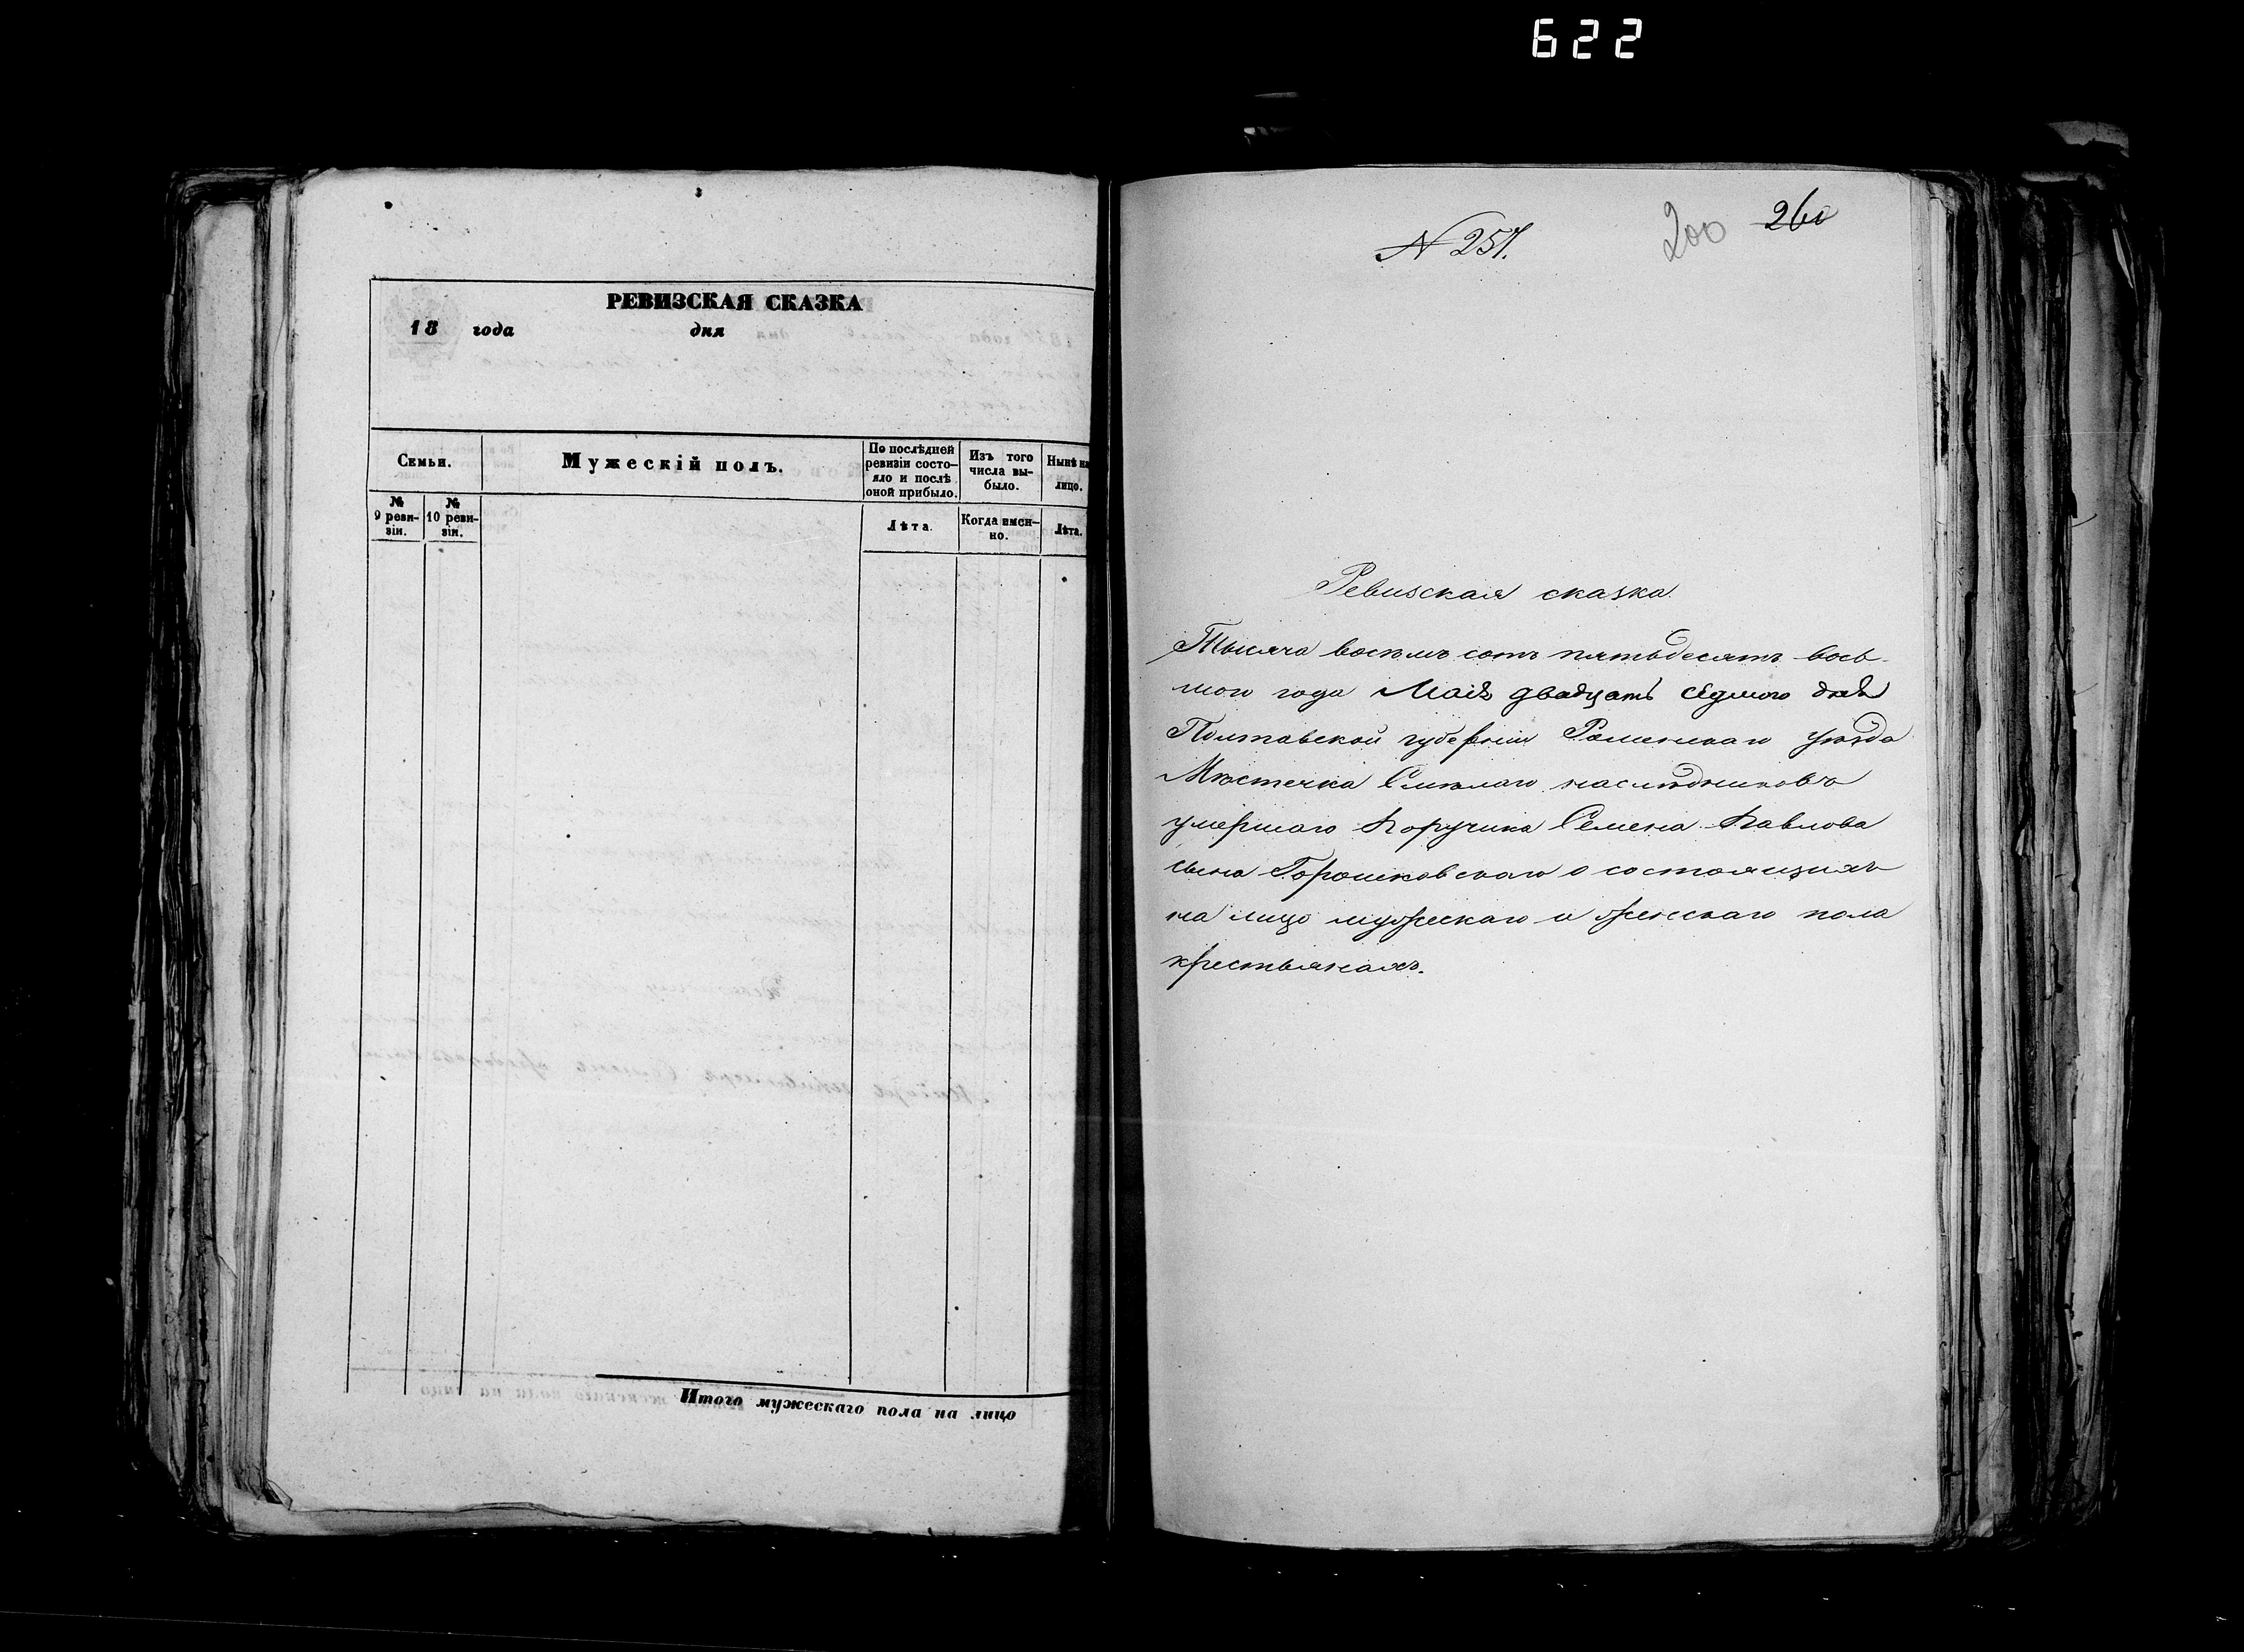 622
РЕВИЗСКАЯ СКАЗКА
18 года дня
Семьи.
Мужескій полъ.
По послѣдней ревизіи состо-
яло и послѣ
оной прибыло.
Изъ того
числа вы-
было.
Нынѣ на
лицо.
№
9 реви-
зіи.
№
10 реви-
зіи.
Лѣта.
Когда имен-
но.
Лѣта.
Итого мужескаго пола на лицо
N 257.
200
260
Ревизская сказка
Тысяча восемь сотъ пятьдесятъ вось-
мого года Мая двадцать седмого дня
Полтавской губерніи Роменскаго уѣзда
Мѣстечка Смѣлаго наслѣдниковъ
умершаго Поручика Семена Павлова
сына Горошковскаго о состоящихъ
на лицо мужескаго и женскаго пола
крестьянахъ.